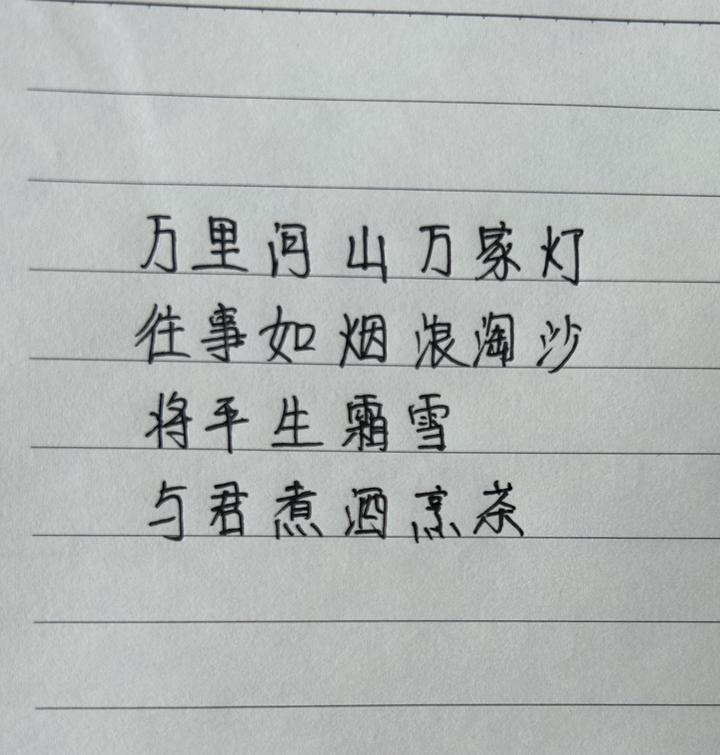 万里河山万家灯
往事如烟浪淘沙
将平生霜雪
与君煮酒烹茶